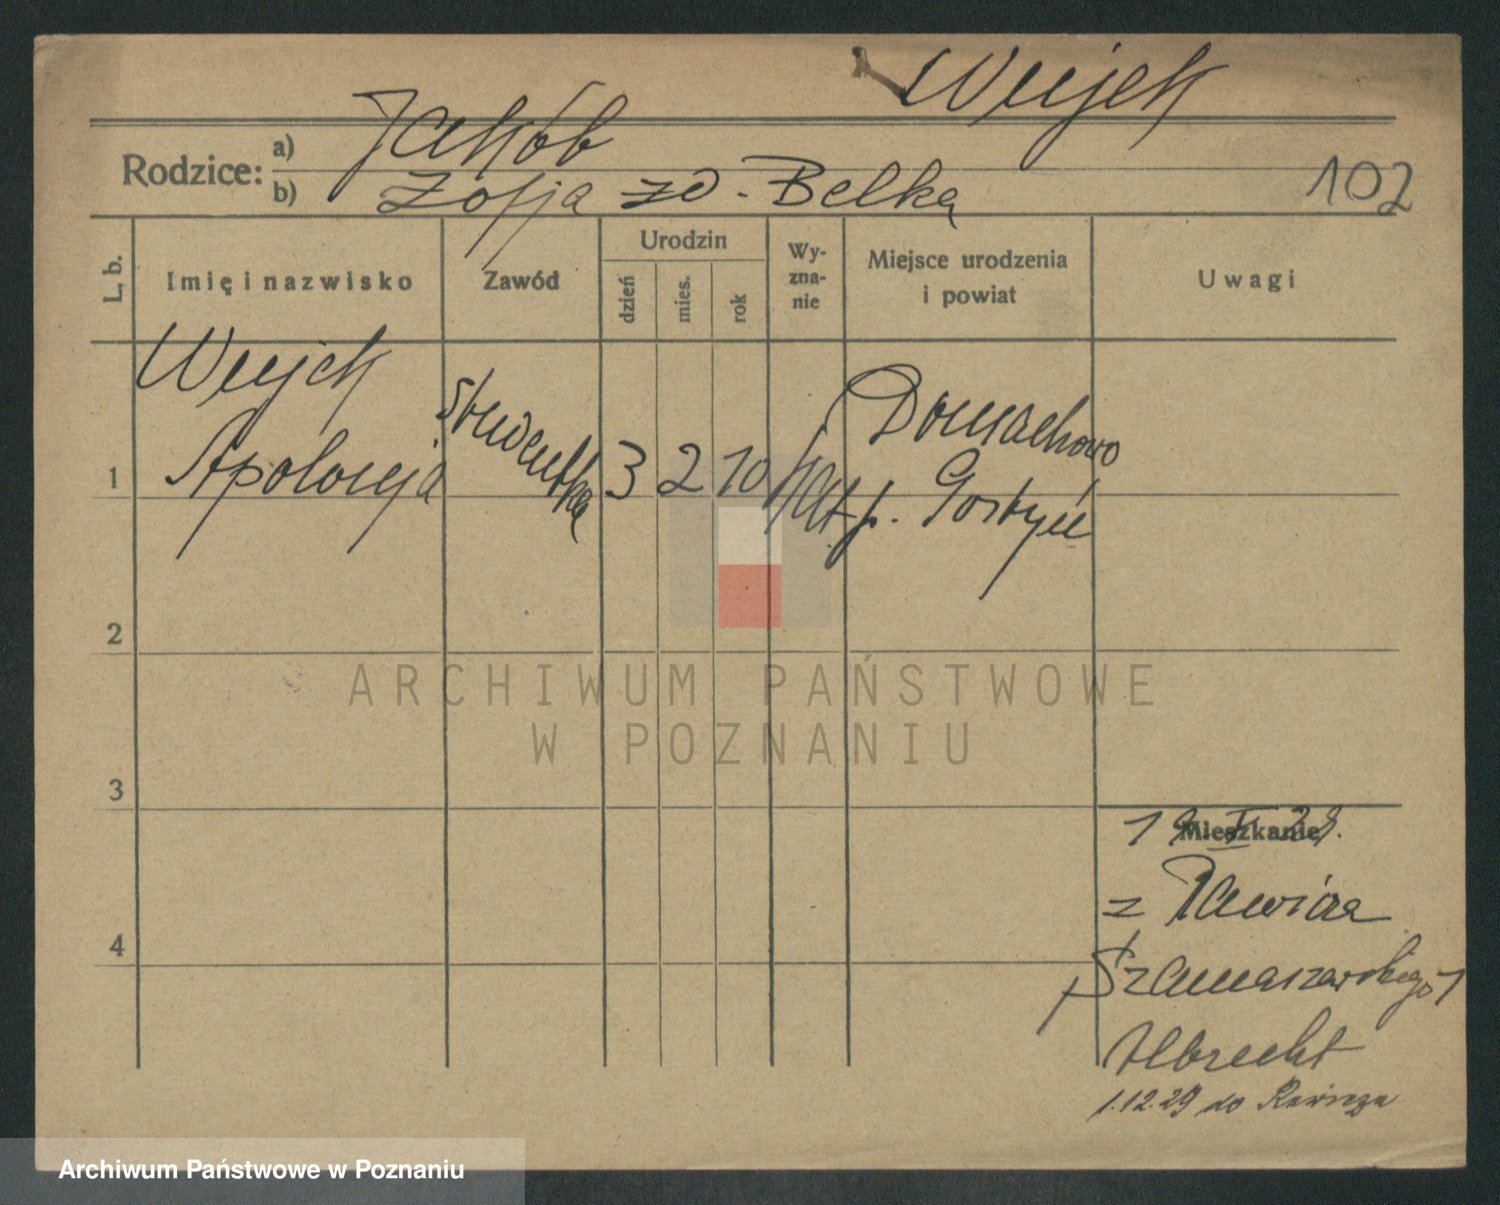 Wujek
Rodzice:
a) Jakób
b) Zofja zd. Belka
102
L. b.
Imię i nazwisko
Zawód
Urodzin
dzień
mies.
rok
Wy-
zna-
nie
Miejsce urodzenia
i powiat
Uwagi
1
Wujek
Apolonja
studentka
3
2
10
kat
Domachowo
p. Gostyń
2
3
4
Mieszkanie
z
Szamarzewskiego
Albrecht
1.12.29 do Rawicza
ARCHIWUM PAŃSTWOWE
W POZNANIU
Archiwum Państwowe w Poznaniu